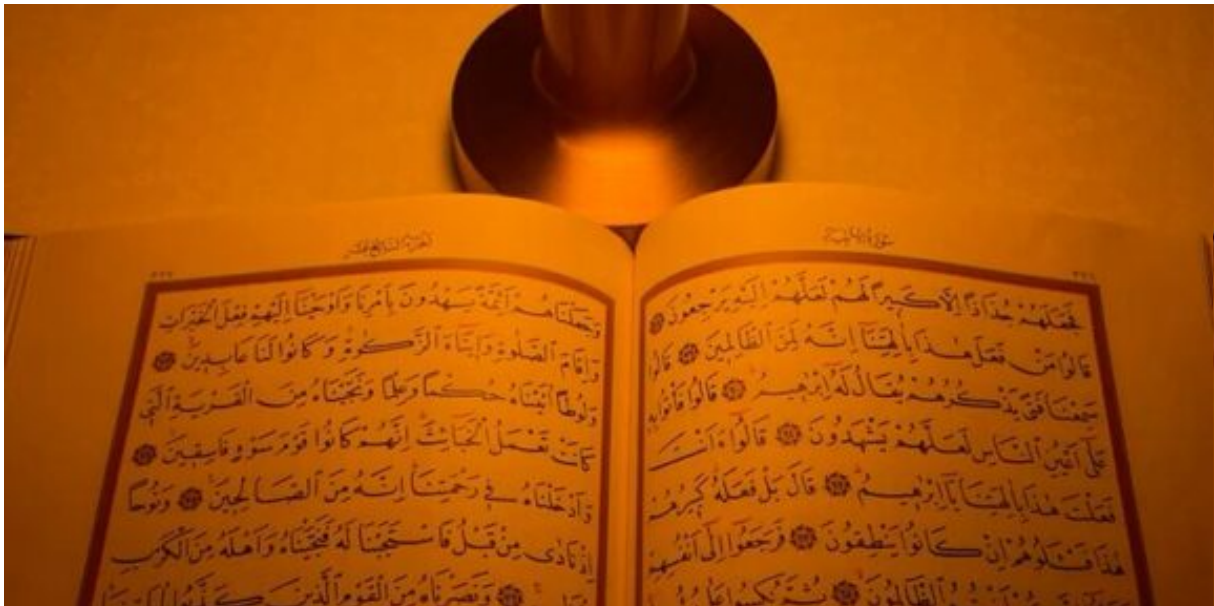 سُورَةُ الْاَنْبِيَاءِ
فَجَعَلَهُمْ جُذَاذًا اِلَّا كَبِيرًا لَهُمْ لَعَلَّهُمْ اِلَيْهِ يَرْجِعُونَ
قَالُوا مَنْ فَعَلَ هٰذَا بِاٰلِهَتِنَا اِنَّهُ لَمِنَ الظَّالِمِينَ قَالُوا
سَمِعْنَا فَتًى يَذْكُرُهُمْ يُقَالُ لَهُ اِبْرٰهِيمُ قَالُوا فَأْتُوا بِهِ
عَلٰى اَعْيُنِ النَّاسِ لَعَلَّهُمْ يَشْهَدُونَ قَالُوا ءَاَنْتَ
فَعَلْتَ هٰذَا بِاٰلِهَتِنَا يَا اِبْرٰهِيمُ قَالَ بَلْ فَعَلَهُ كَبِيرُهُمْ
هٰذَا فَسْـَٔلُوهُمْ اِنْ كَانُوا يَنْطِقُونَ فَرَجَعُوا اِلٰى اَنْفُسِهِمْ
الظَّالِمُونَ ثُمَّ نُكِسُوا عَلٰى
اَلْجُزْءُ السَّابِعَ عَشَرَ
وَجَعَلْنَاهُمْ اَئِمَّةً يَهْدُونَ بِاَمْرِنَا وَاَوْحَيْنَا اِلَيْهِمْ فِعْلَ الْخَيْرَاتِ
وَاِقَامَ الصَّلٰوةِ وَاِيتَاءَ الزَّكٰوةِ وَكَانُوا لَنَا عَابِدِينَ
وَلُوطًا اٰتَيْنَاهُ حُكْمًا وَعِلْمًا وَنَجَّيْنَاهُ مِنَ الْقَرْيَةِ الَّتِي
كَانَتْ تَعْمَلُ الْخَبَائِثَ اِنَّهُمْ كَانُوا قَوْمَ سَوْءٍ فَاسِقِينَ
وَاَدْخَلْنَاهُ فِي رَحْمَتِنَا اِنَّهُ مِنَ الصَّالِحِينَ وَنُوحًا
اِذْ نَادٰى مِنْ قَبْلُ فَاسْتَجَبْنَا لَهُ فَنَجَّيْنَاهُ وَاَهْلَهُ مِنَ الْكَرْبِ
وَنَصَرْنَاهُ مِنَ الْقَوْمِ الَّذِينَ كَذَّبُوا بِاٰيَاتِنَا